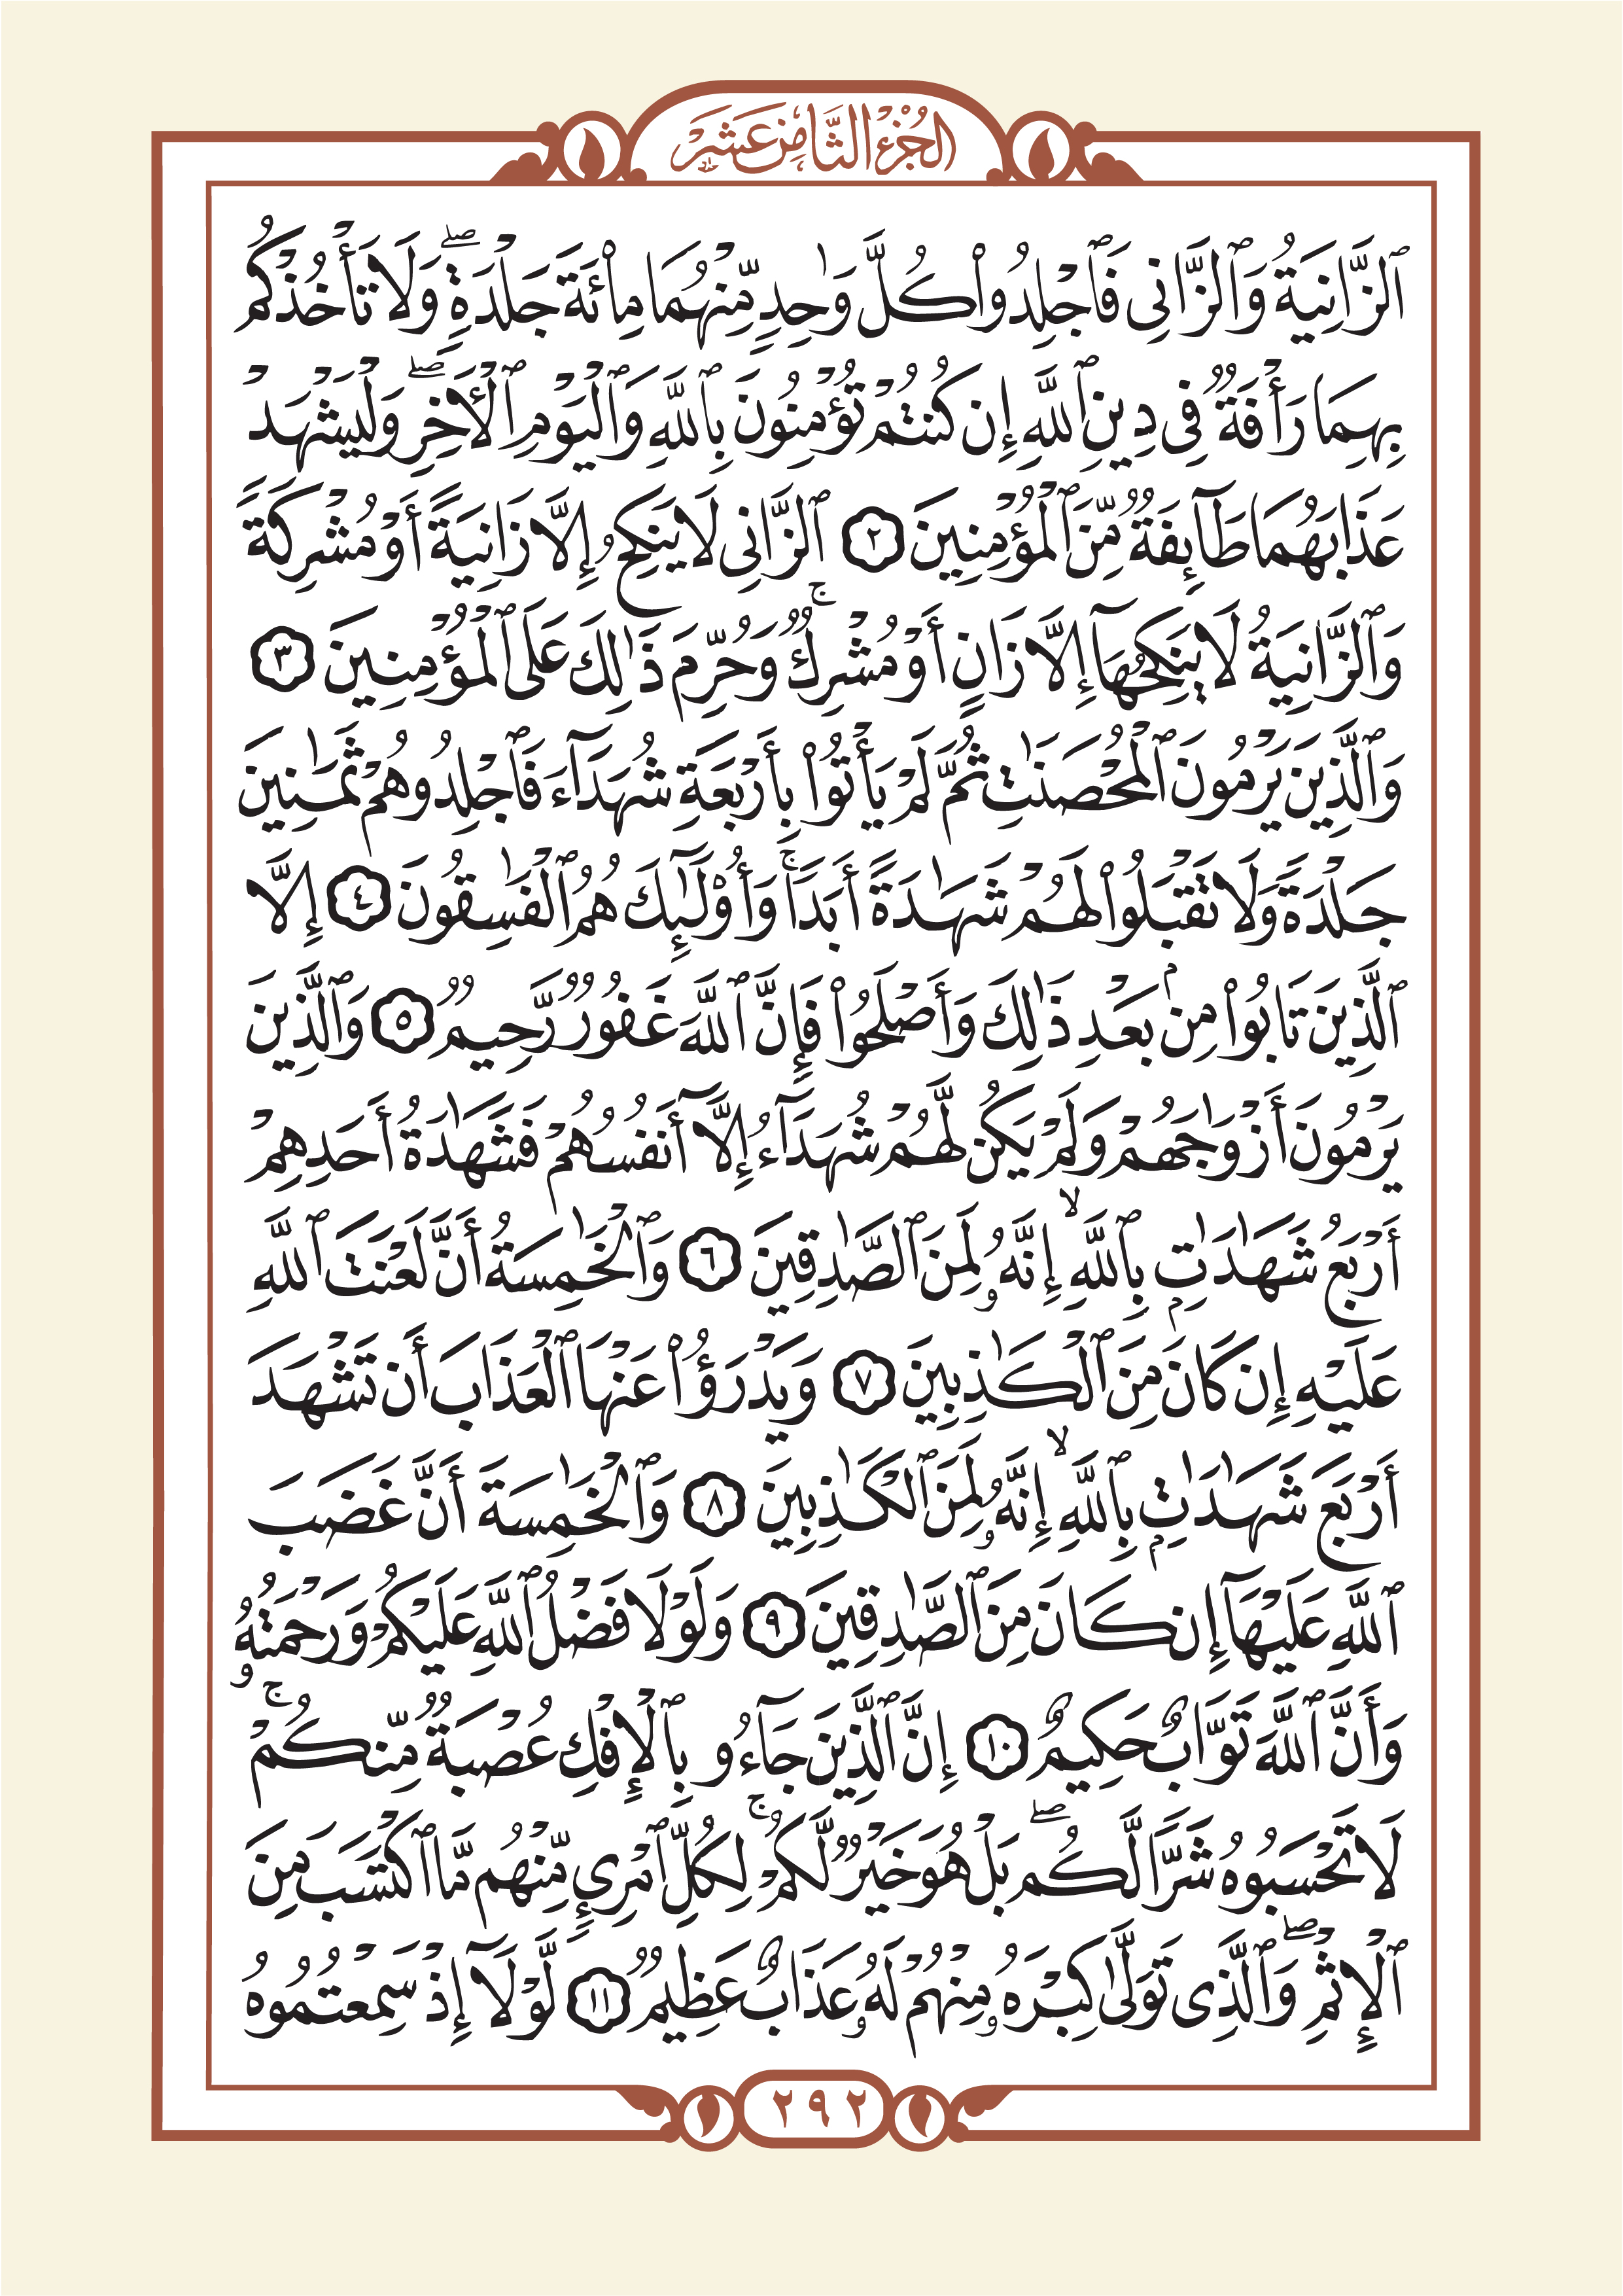 الجزء الثامن عشر
ٱلزَّانِيَةُ وَٱلزَّانِى فَٱجْلِدُوا۟ كُلَّ وَٰحِدٍ مِّنْهُمَا مِا۟ئَةَ جَلْدَةٍ ۖ وَلَا تَأْخُذْكُم
بِهِمَا رَأْفَةٌ فِى دِينِ ٱللَّهِ إِن كُنتُمْ تُؤْمِنُونَ بِٱللَّهِ وَٱلْيَوْمِ ٱلْـَٔاخِرِ ۖ وَلْيَشْهَدْ
عَذَابَهُمَا طَآئِفَةٌ مِّنَ ٱلْمُؤْمِنِينَ ٢ ٱلزَّانِى لَا يَنكِحُ إِلَّا زَانِيَةً أَوْ مُشْرِكَةً
وَٱلزَّانِيَةُ لَا يَنكِحُهَآ إِلَّا زَانٍ أَوْ مُشْرِكٌ ۚ وَحُرِّمَ ذَٰلِكَ عَلَى ٱلْمُؤْمِنِينَ ٣
وَٱلَّذِينَ يَرْمُونَ ٱلْمُحْصَنَٰتِ ثُمَّ لَمْ يَأْتُوا۟ بِأَرْبَعَةِ شُهَدَآءَ فَٱجْلِدُوهُمْ ثَمَٰنِينَ
جَلْدَةً وَلَا تَقْبَلُوا۟ لَهُمْ شَهَٰدَةً أَبَدًا ۚ وَأُو۟لَٰٓئِكَ هُمُ ٱلْفَٰسِقُونَ ٤ إِلَّا
ٱلَّذِينَ تَابُوا۟ مِنۢ بَعْدِ ذَٰلِكَ وَأَصْلَحُوا۟ فَإِنَّ ٱللَّهَ غَفُورٌ رَّحِيمٌ ٥ وَٱلَّذِينَ
يَرْمُونَ أَزْوَٰجَهُمْ وَلَمْ يَكُن لَّهُمْ شُهَدَآءُ إِلَّآ أَنفُسُهُمْ فَشَهَٰدَةُ أَحَدِهِمْ
أَرْبَعُ شَهَٰدَٰتٍۭ بِٱللَّهِ ۙ إِنَّهُۥ لَمِنَ ٱلصَّٰدِقِينَ ٦ وَٱلْخَٰمِسَةُ أَنَّ لَعْنَتَ ٱللَّهِ
عَلَيْهِ إِن كَانَ مِنَ ٱلْكَٰذِبِينَ ٧ وَيَدْرَؤُا۟ عَنْهَا ٱلْعَذَابَ أَن تَشْهَدَ
أَرْبَعَ شَهَٰدَٰتٍۭ بِٱللَّهِ ۙ إِنَّهُۥ لَمِنَ ٱلْكَٰذِبِينَ ٨ وَٱلْخَٰمِسَةَ أَنَّ غَضَبَ
ٱللَّهِ عَلَيْهَآ إِن كَانَ مِنَ ٱلصَّٰدِقِينَ ٩ وَلَوْلَا فَضْلُ ٱللَّهِ عَلَيْكُمْ وَرَحْمَتُهُۥ
وَأَنَّ ٱللَّهَ تَوَّابٌ حَكِيمٌ ١٠ إِنَّ ٱلَّذِينَ جَآءُو بِٱلْإِفْكِ عُصْبَةٌ مِّنكُمْ ۚ
لَا تَحْسَبُوهُ شَرًّا لَّكُم ۖ بَلْ هُوَ خَيْرٌ لَّكُمْ ۚ لِكُلِّ ٱمْرِئٍ مِّنْهُم مَّا ٱكْتَسَبَ مِنَ
ٱلْإِثْمِ ۖ وَٱلَّذِى تَوَلَّىٰ كِبْرَهُۥ مِنْهُمْ لَهُۥ عَذَابٌ عَظِيمٌ ١١ لَّوْلَآ إِذْ سَمِعْتُمُوهُ
٢٩٢